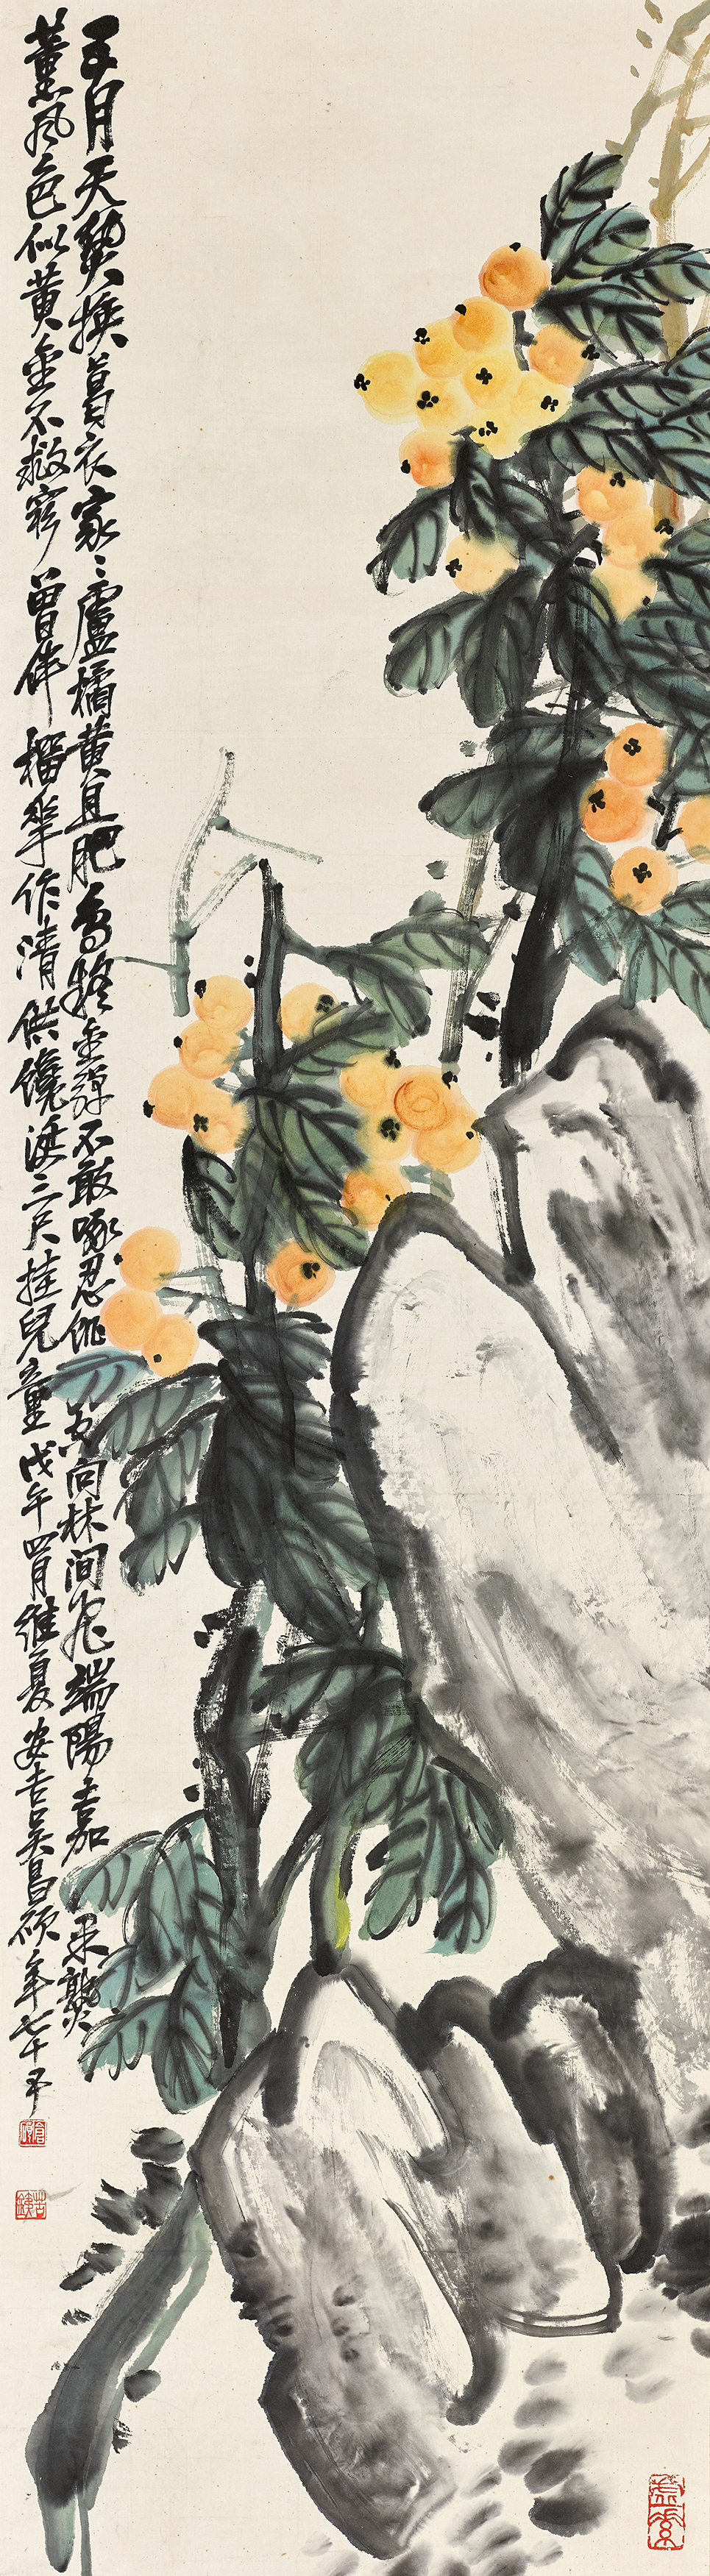 五月天熱換葛衣家〻盧橘黄且肥鳥疑金彈不敢啄忍饑空向林間飛端陽嘉果熟
薰風色似黄金不救窮曾伴榴華作清供饞涎三尺挂兒童戊午四月維夏安吉吴昌碩年七十五
倉碩
苦鐵
虚素